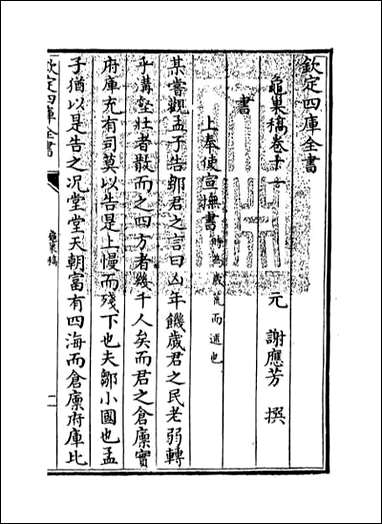 欽定四庫全書
龜巢稿卷十一
元 謝應芳 撰
書
上奉使宣撫書時為歲荒而逋也
某嘗觀孟子告鄒君之言曰凶年饑歲君之民老弱轉
乎溝壑壯者散而之四方者幾千人矣而君之倉廩實
府庫充有司莫以告是上慢而殘下也夫鄒小國也孟
子猶以是告之况堂堂天朝富有四海而倉廩府庫比
欽定四庫全書
龜巢稿
一